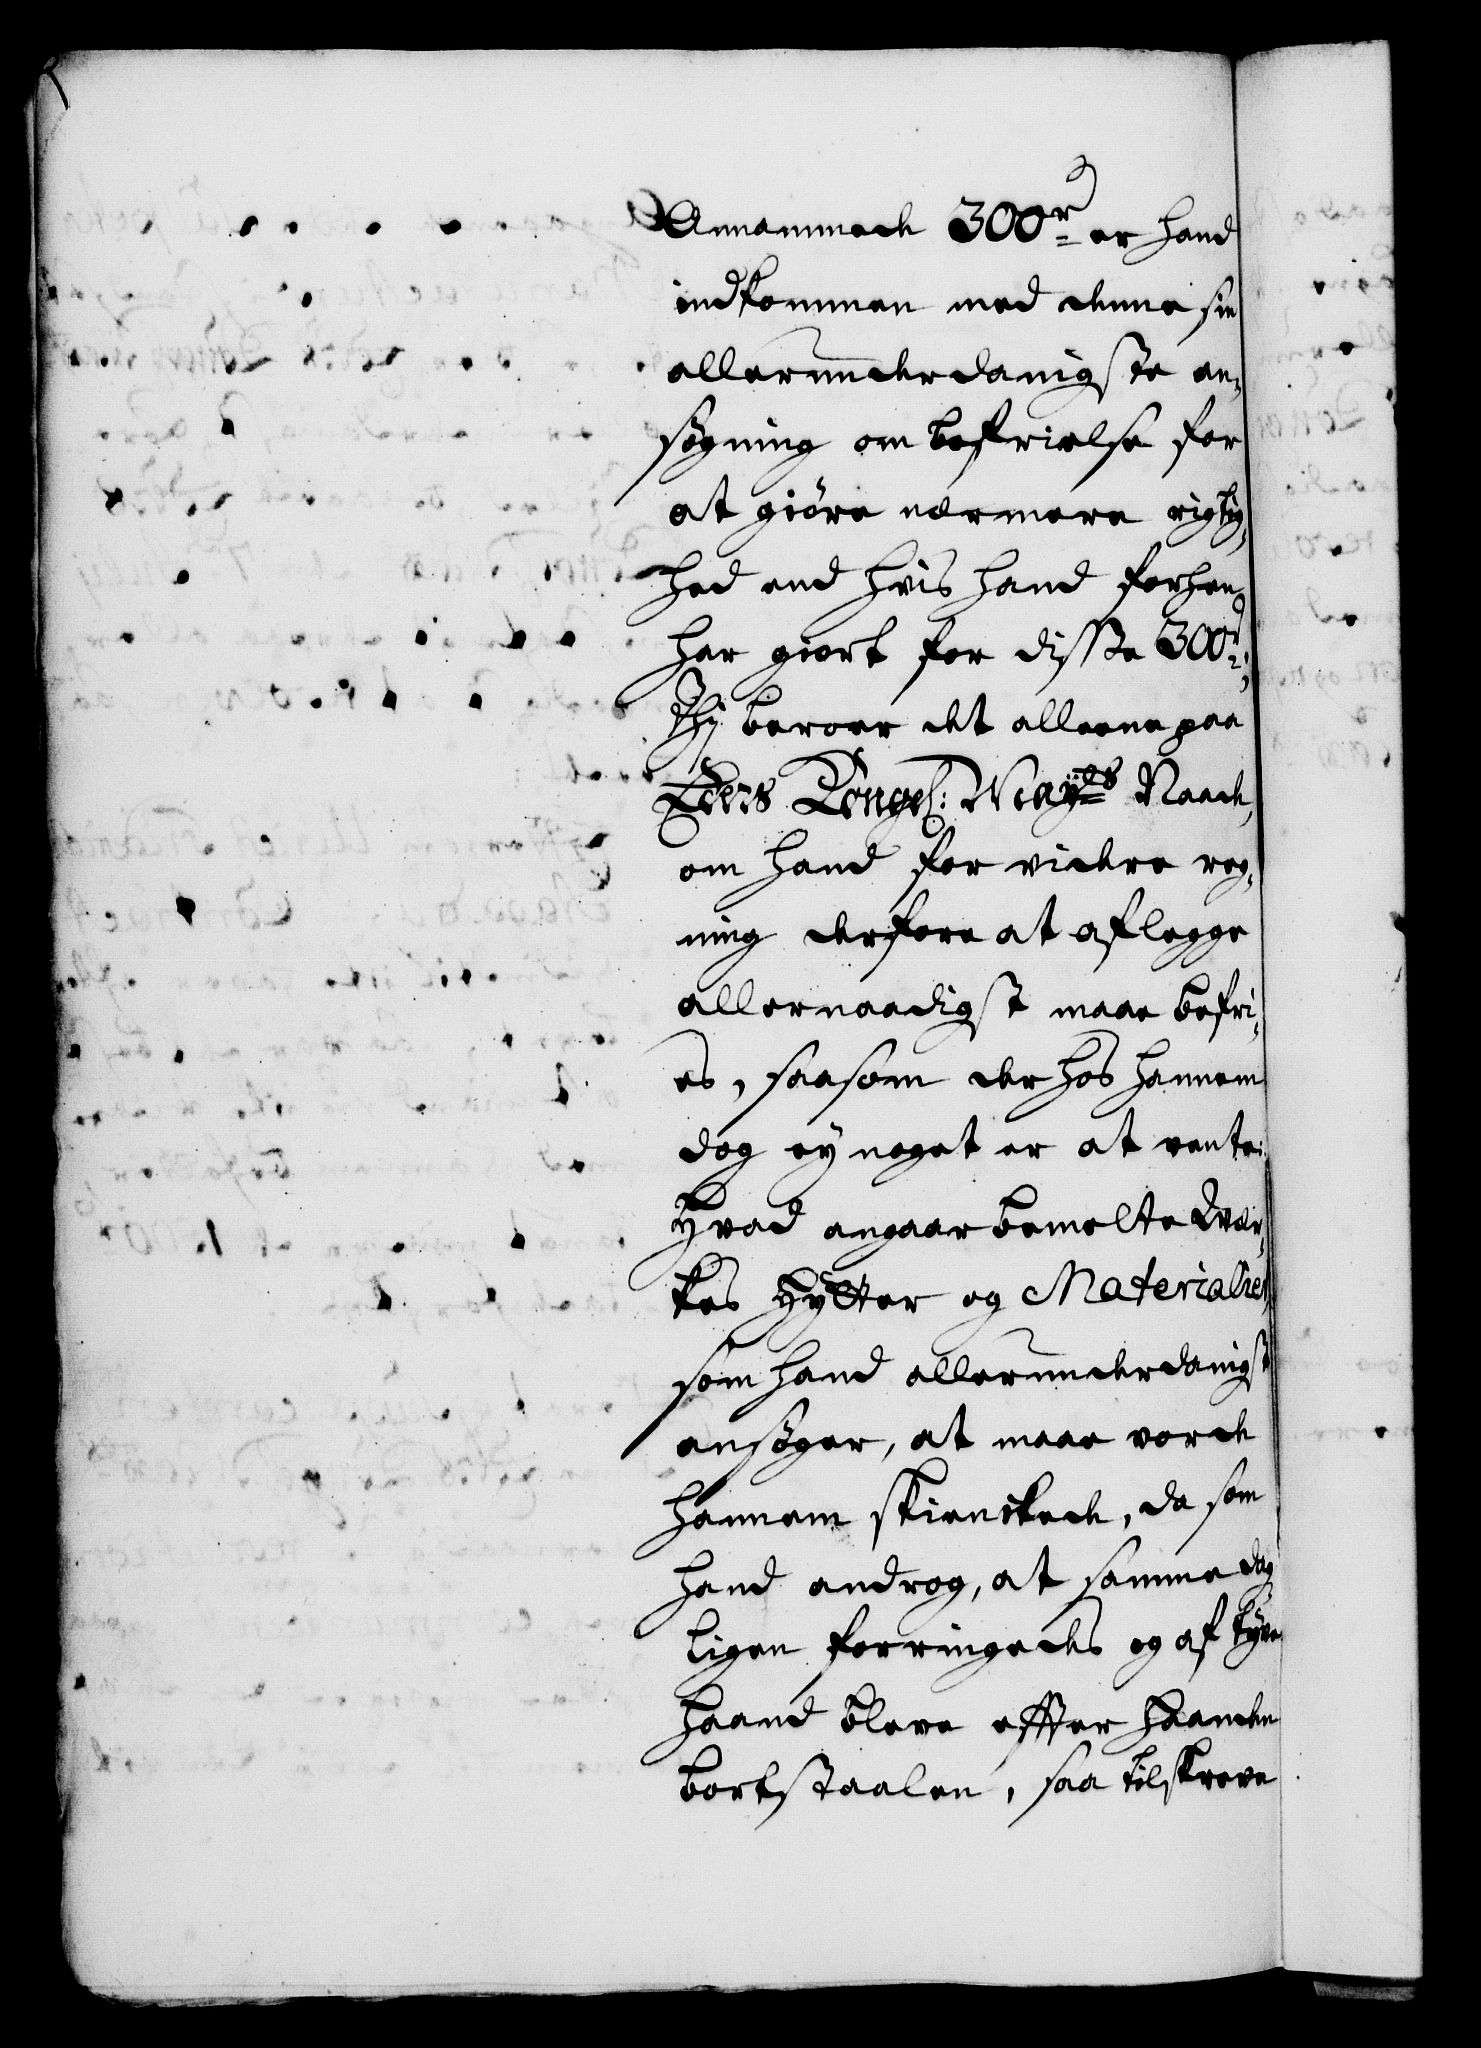 Annammede 300 rd er hand
indkommen med denne sin
allerunderdanigste an-
søgning om befrielse for
at giöre nærmere rigtig-
hed end hvis hand forhen
har giort for disse 300 rd;
Thj beroer det alleene paa
Eders Kongel: Mayts Naade,
om hand for videre reg-
ning derfore at aflegge
allernaadigst maae befri-
es, saasom der hos hannem
dog ey noget er at vente:
Hvad angaar bemelte Qvær-
kes Hytter og Materialier,
som hand allerunderdanigst
ansøger, at maae vorde
hannem skienckede, da som
hand androg, at samme dag-
ligen forringedes og af tyve
haand bleve effter haanden
bortstaalen, saa tilskreve